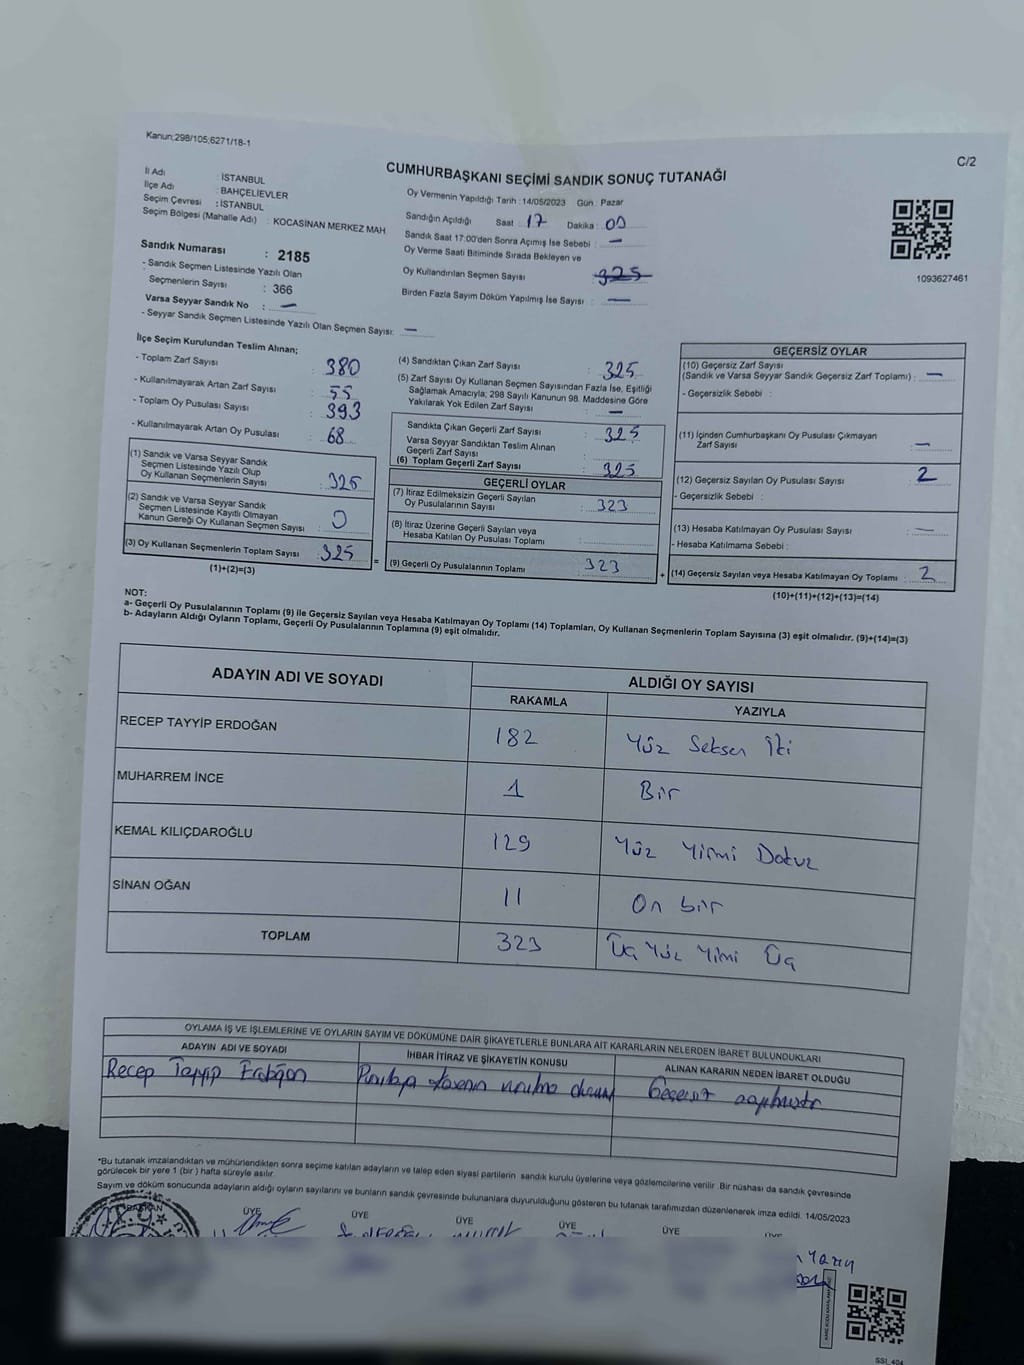 Kanun;298/105;6271/18-1
C/2
CUMHURBAŞKANI SEÇİMİ SANDIK SONUÇ TUTANAĞI
İl Adı : İSTANBUL
İlçe Adı : BAHÇELİEVLER
Seçim Çevresi : İSTANBUL
Seçim Bölgesi (Mahalle Adı) : KOCASİNAN MERKEZ MAH.
Sandık Numarası : 2185
- Sandık Seçmen Listesinde Yazılı Olan
Seçmenlerin Sayısı : 366
Varsa Seyyar Sandık No : —
- Seyyar Sandık Seçmen Listesinde Yazılı Olan Seçmen Sayısı: —
Oy Vermenin Yapıldığı Tarih : 14/05/2023 Gün : Pazar
Sandığın Açıldığı Saat : 17 Dakika : 00
Sandık Saat 17:00'den Sonra Açımış İse Sebebi : —
Oy Verme Saati Bitiminde Sırada Bekleyen ve
Oy Kullandırılan Seçmen Sayısı : 325
Birden Fazla Sayım Döküm Yapılmış İse Sayısı : —
1093627461
İlçe Seçim Kurulundan Teslim Alınan;
- Toplam Zarf Sayısı : 380
- Kullanılmayarak Artan Zarf Sayısı : 55
- Toplam Oy Pusulası Sayısı : 393
- Kullanılmayarak Artan Oy Pusulası : 68
(1) Sandık ve Varsa Seyyar Sandık
Seçmen Listesinde Yazılı Olup
Oy Kullanan Seçmenlerin Sayısı : 325
(2) Sandık ve Varsa Seyyar Sandık
Seçmen Listesinde Kayıtlı Olmayan
Kanun Gereği Oy Kullanan Seçmen Sayısı : 0
(3) Oy Kullanan Seçmenlerin Toplam Sayısı : 325
(1)+(2)=(3)
=
(4) Sandıktan Çıkan Zarf Sayısı : 325
(5) Zarf Sayısı Oy Kullanan Seçmen Sayısından Fazla İse, Eşitliği
Sağlamak Amacıyla; 298 Sayılı Kanunun 98. Maddesine Göre
Yakılarak Yok Edilen Zarf Sayısı : —
Sandıkta Çıkan Geçerli Zarf Sayısı : 325
Varsa Seyyar Sandıktan Teslim Alınan
Geçerli Zarf Sayısı :
(6) Toplam Geçerli Zarf Sayısı : 325
GEÇERLİ OYLAR
(7) İtiraz Edilmeksizin Geçerli Sayılan
Oy Pusulalarının Sayısı : 323
(8) İtiraz Üzerine Geçerli Sayılan veya
Hesaba Katılan Oy Pusulası Toplamı :
(9) Geçerli Oy Pusulalarının Toplamı : 323
+
GEÇERSİZ OYLAR
(10) Geçersiz Zarf Sayısı
(Sandık ve Varsa Seyyar Sandık Geçersiz Zarf Toplamı) : —
- Geçersizlik Sebebi :
(11) İçinden Cumhurbaşkanı Oy Pusulası Çıkmayan
Zarf Sayısı : —
(12) Geçersiz Sayılan Oy Pusulası Sayısı : 2
- Geçersizlik Sebebi :
(13) Hesaba Katılmayan Oy Pusulası Sayısı : —
- Hesaba Katılmama Sebebi :
(14) Geçersiz Sayılan veya Hesaba Katılmayan Oy Toplamı : 2
(10)+(11)+(12)+(13)=(14)
NOT:
a- Geçerli Oy Pusulalarının Toplamı (9) ile Geçersiz Sayılan veya Hesaba Katılmayan Oy Toplamı (14) Toplamları, Oy Kullanan Seçmenlerin Toplam Sayısına (3) eşit olmalıdır. (9)+(14)=(3)
b- Adayların Aldığı Oyların Toplamı, Geçerli Oy Pusulalarının Toplamına (9) eşit olmalıdır.
ADAYIN ADI VE SOYADI
ALDIĞI OY SAYISI
RAKAMLA YAZIYLA
RECEP TAYYİP ERDOĞAN 182 Yüz Seksen İki
MUHARREM İNCE 1 Bir
KEMAL KILIÇDAROĞLU 129 Yüz Yirmi Dokuz
SİNAN OĞAN 11 On bir
TOPLAM 323 Üç Yüz Yimi Üç
OYLAMA İŞ VE İŞLEMLERİNE VE OYLARIN SAYIM VE DÖKÜMÜNE DAİR ŞİKAYETLERLE BUNLARA AİT KARARLARIN NELERDEN İBARET BULUNDUKLARI
ADAYIN ADI VE SOYADI İHBAR İTİRAZ VE ŞİKAYETİN KONUSU ALINAN KARARIN NEDEN İBARET OLDUĞU
Recep Tayyip Erdoğan
Geçersiz
*Bu tutanak imzalandıktan ve mühürlendikten sonra seçime katılan adayların ve talep eden siyasi partilerin sandık kurulu üyelerine veya gözlemcilerine verilir. Bir nüshası da sandık çevresinde
görülecek bir yere 1 (bir ) hafta süreyle asılır.
Sayım ve döküm sonucunda adayların aldığı oyların sayılarını ve bunların sandık çevresinde bulunanlara duyurulduğunu gösteren bu tutanak tarafımızdan düzenlenerek imza edildi. 14/05/2023
BAŞKAN ÜYE ÜYE ÜYE ÜYE ÜYE